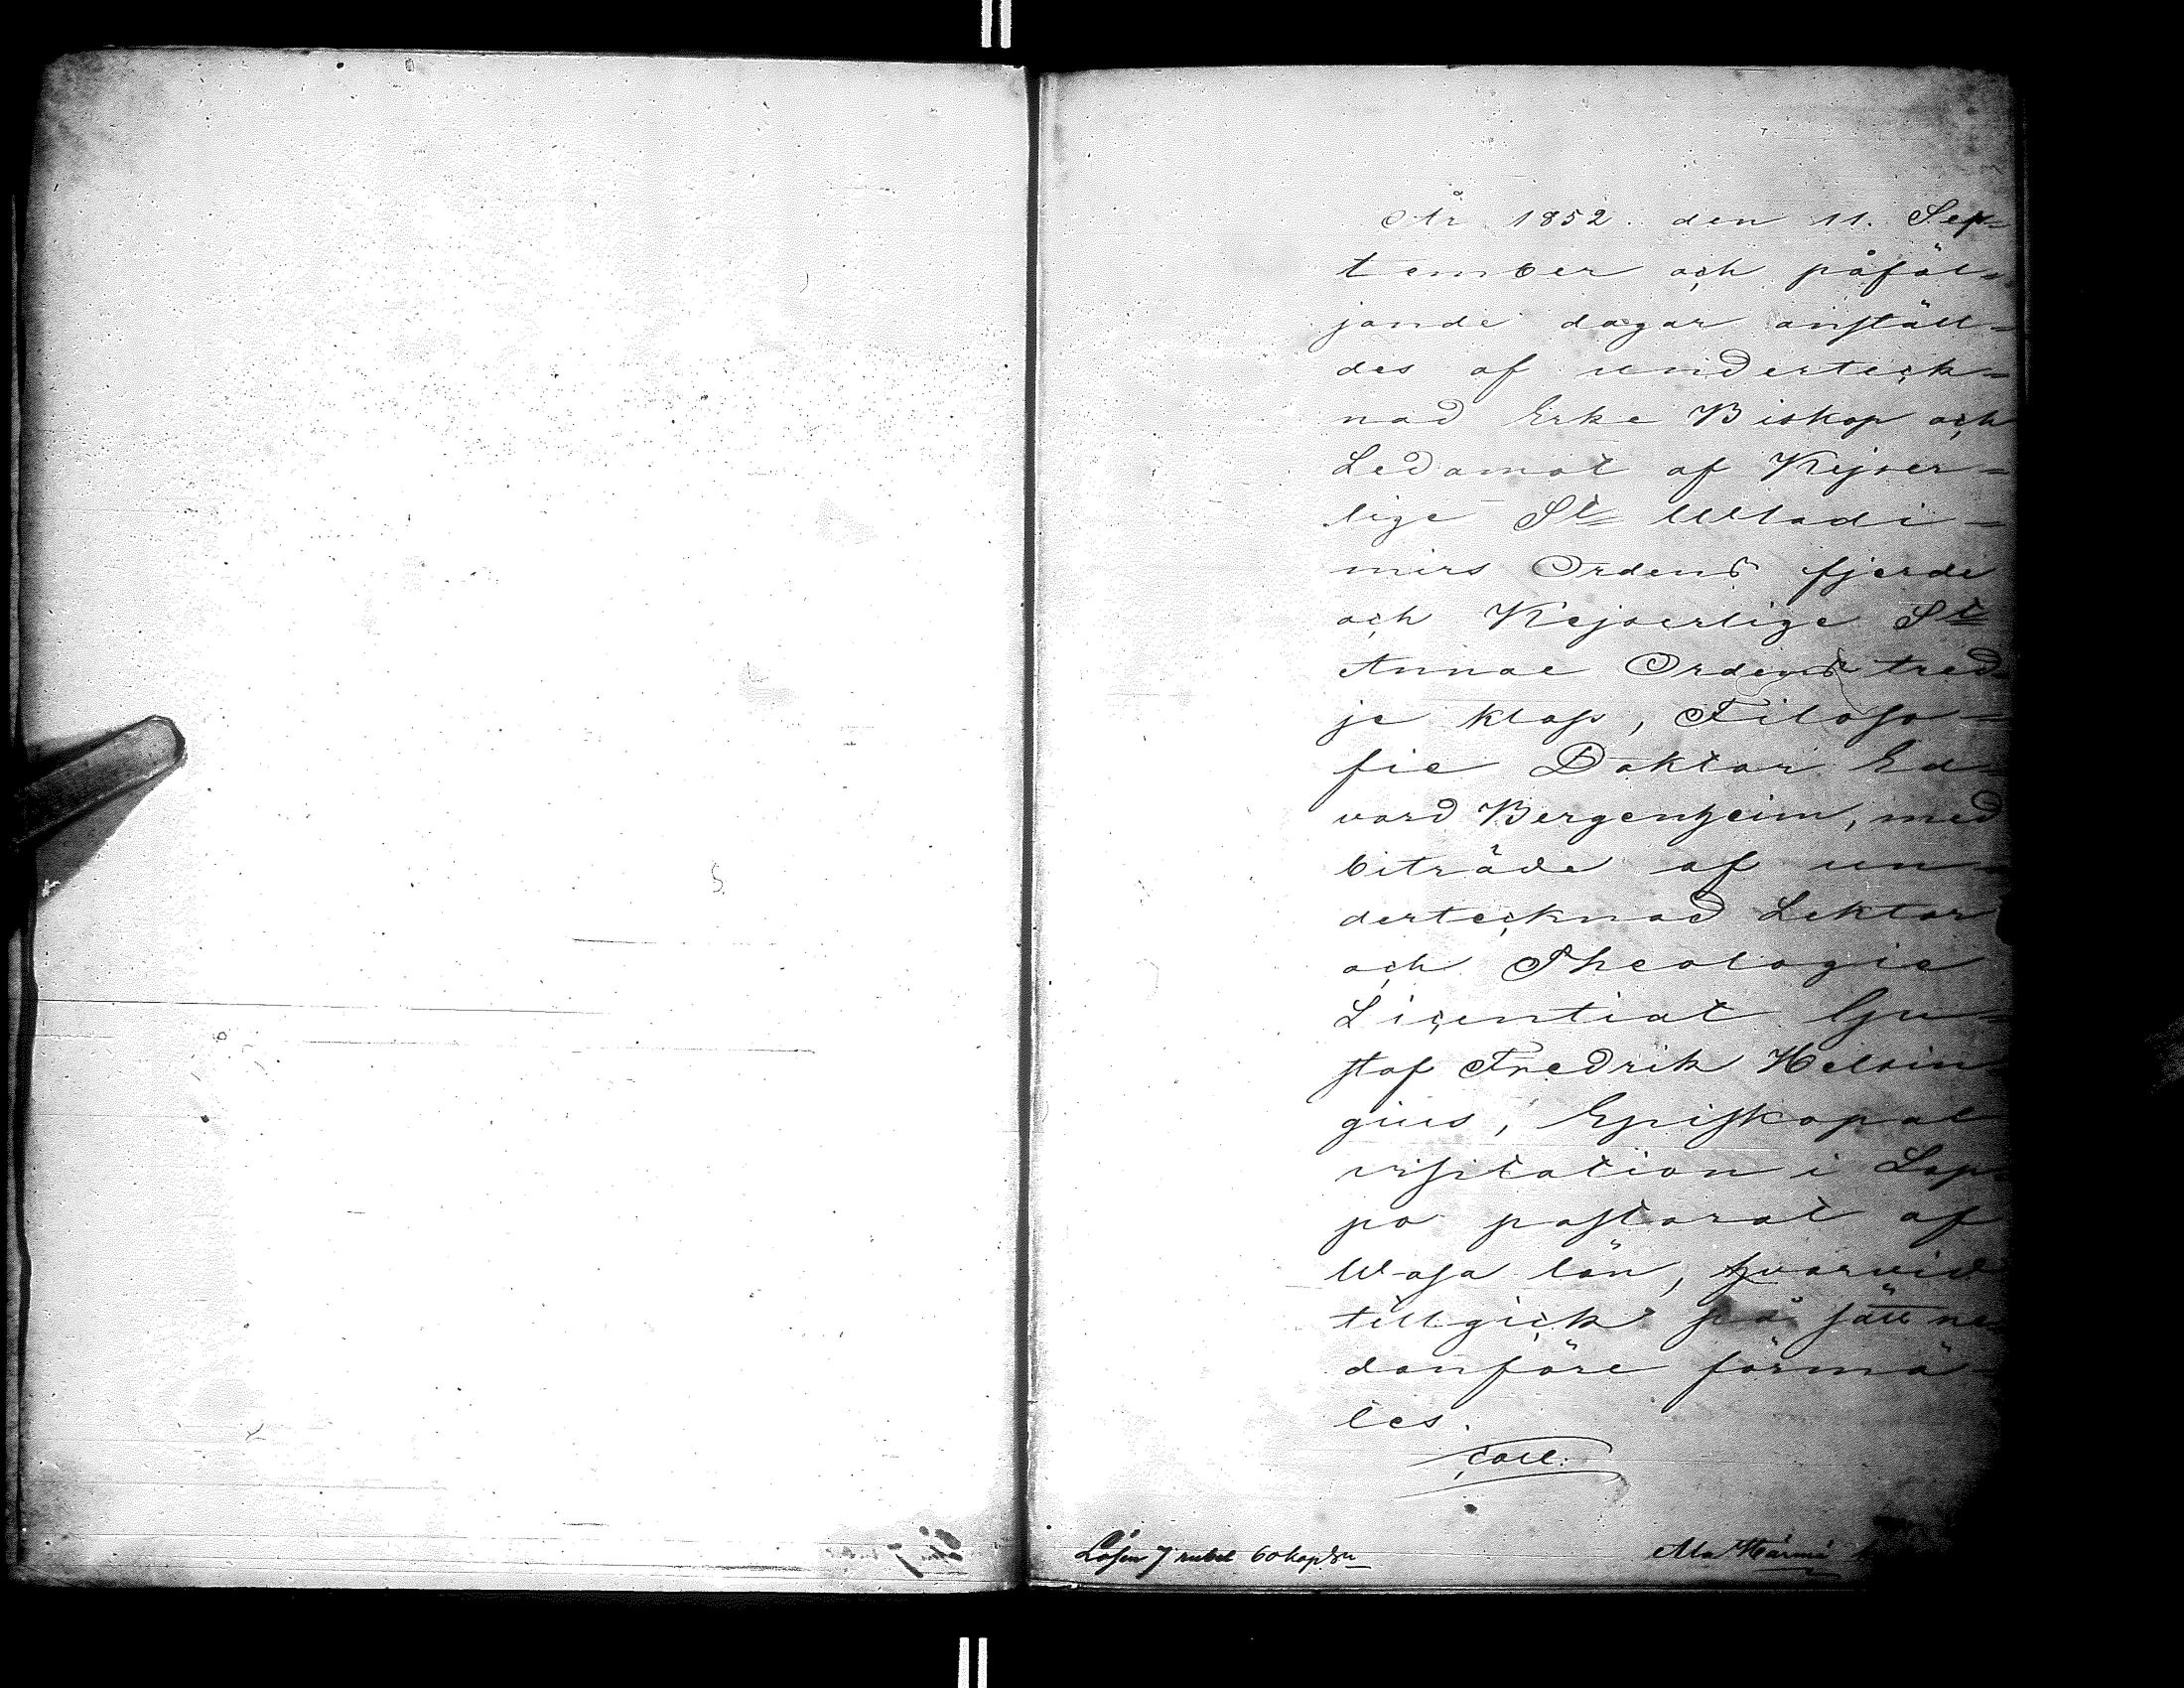 År 1852 den 11. Sep=
tember och påföl=
jande dagar anställ=
des af underteck=
nad Erke Biskop och
Ledamot af Kejser=
lige St Wladi=
mirs Ordens fjerde
och Kejserlige St
Annae Ordens tred=
je klass, Filoso=
fie Doktor Ed=
vard Bergenheim, med
biträde af un=
dertecknad Lektor
och Theologie
Licentiat Gu=
staf Fredrik Helsin=
gius, Episkopal
visitation i Lap=
po pastorat af
Wasa län, hvarvid
tillgick på sätt ne=
danföre förmä=
les.
Coll.
Lösen 7 rubel 60 kop Sr
Ala Härmä